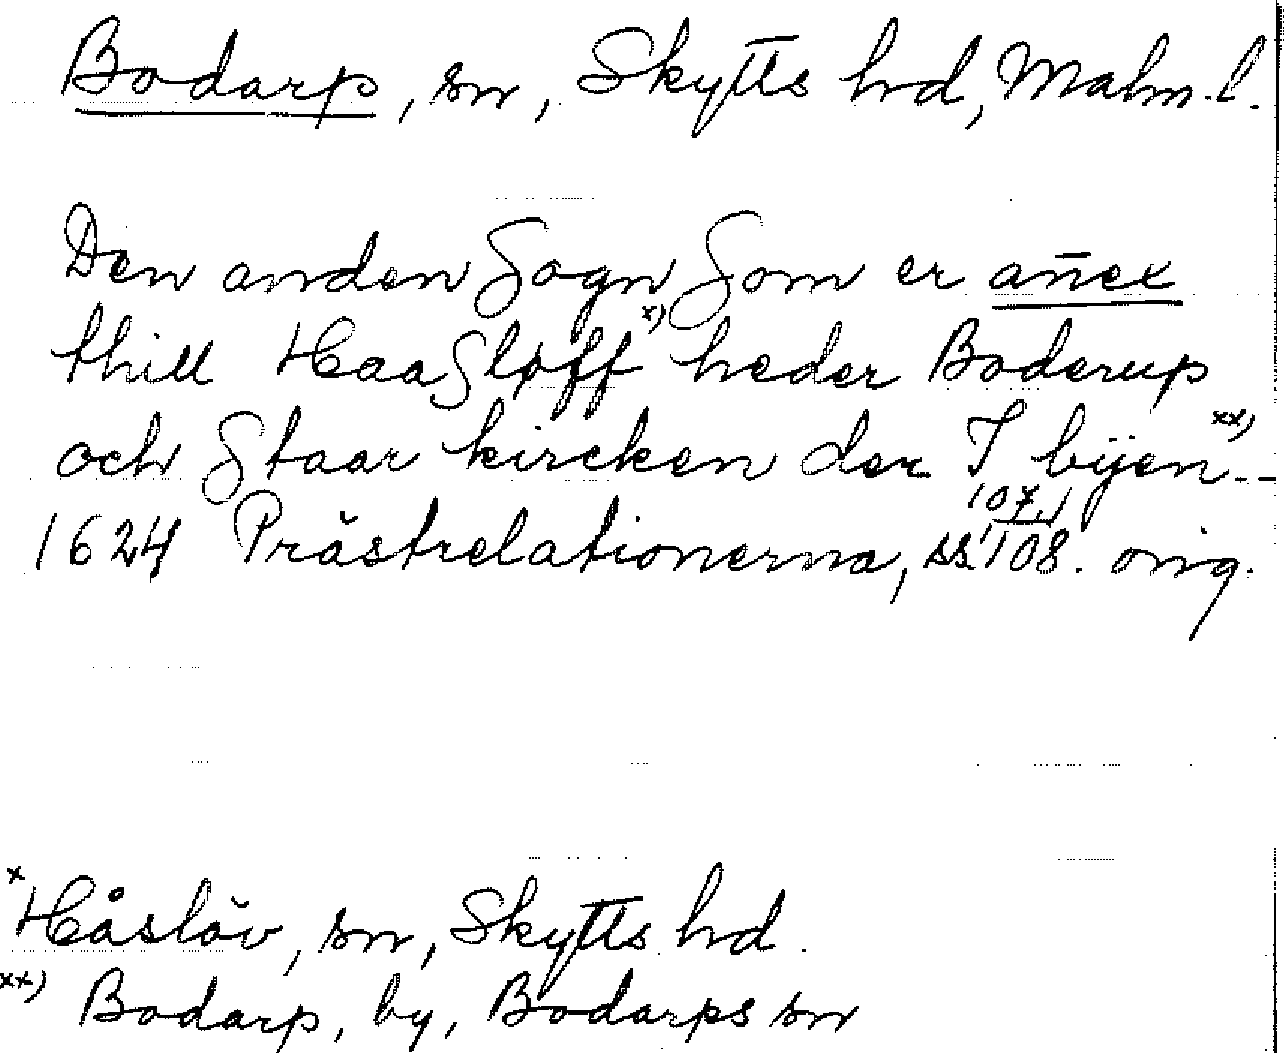 Bodarp, sn, Skytts hd, Malm. l.
Den anden Sogn Som er an̄ex
thill HaaSløff x) heder Boderup
och Staar kircken der I bÿen xx) --
1624 Prästrelationerna, ss. 107, 108. orig.
x Håslöv, sn, Skytts hd.
xx) Bodarp, by, Bodarps sn